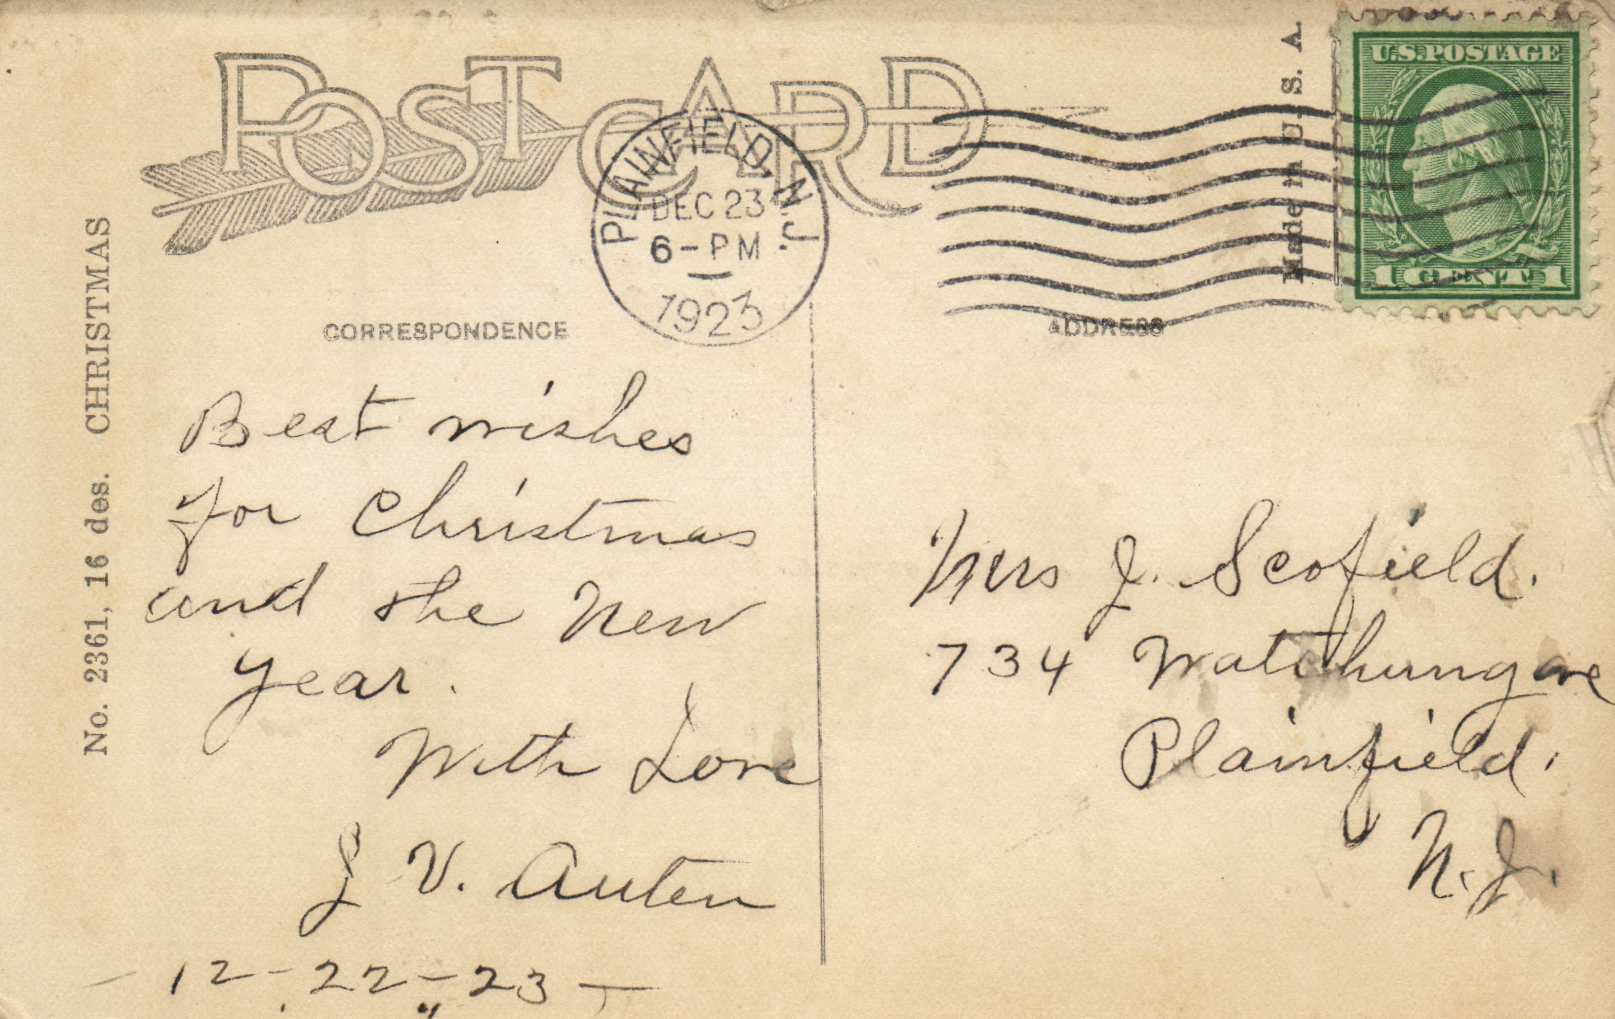 POST CARD
PLAINFIELD, N.J.
DEC 23
6-PM
1923
Made in U. S. A.
U.S. POSTAGE
1 CENT 1
No. 2361, 16 des. CHRISTMAS
CORRESPONDENCE
Best wishes
for Christmas
and the New
Year.
With Love
J V. Auten
- 12-22-23 -
ADDRESS
Mrs J. Scofield.
734 Watchung ave
Plainfield.
N.J.